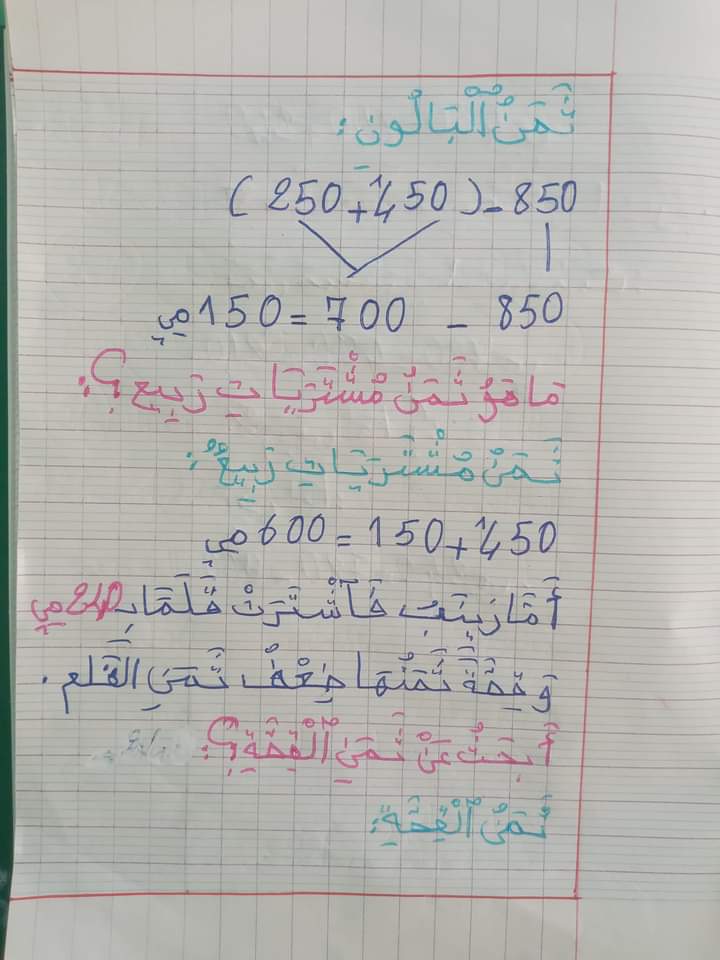 ثَمَنُ الْبَالُونِ:
850 - (450 + 250)
850 - 700 = 150 مي
مَا هُوَ ثَمَنُ مُشْتَرَيَاتِ رَبِيعٍ؟:
ثَمَنُ مُشْتَرَيَاتِ رَبِيعٍ:
450 + 150 = 600 مي
أَمَّا زَيْنَبُ فَاشْتَرَتْ قَلَمًا بِـ مي
وَقِصَّةً ثَمَنُهَا ضِعْفُ ثَمَنِ الْقَلَمِ.
أَبْحَثُ عَنْ ثَمَنِ الْقِصَّةِ؟:
ثَمَنُ الْقِصَّةِ: